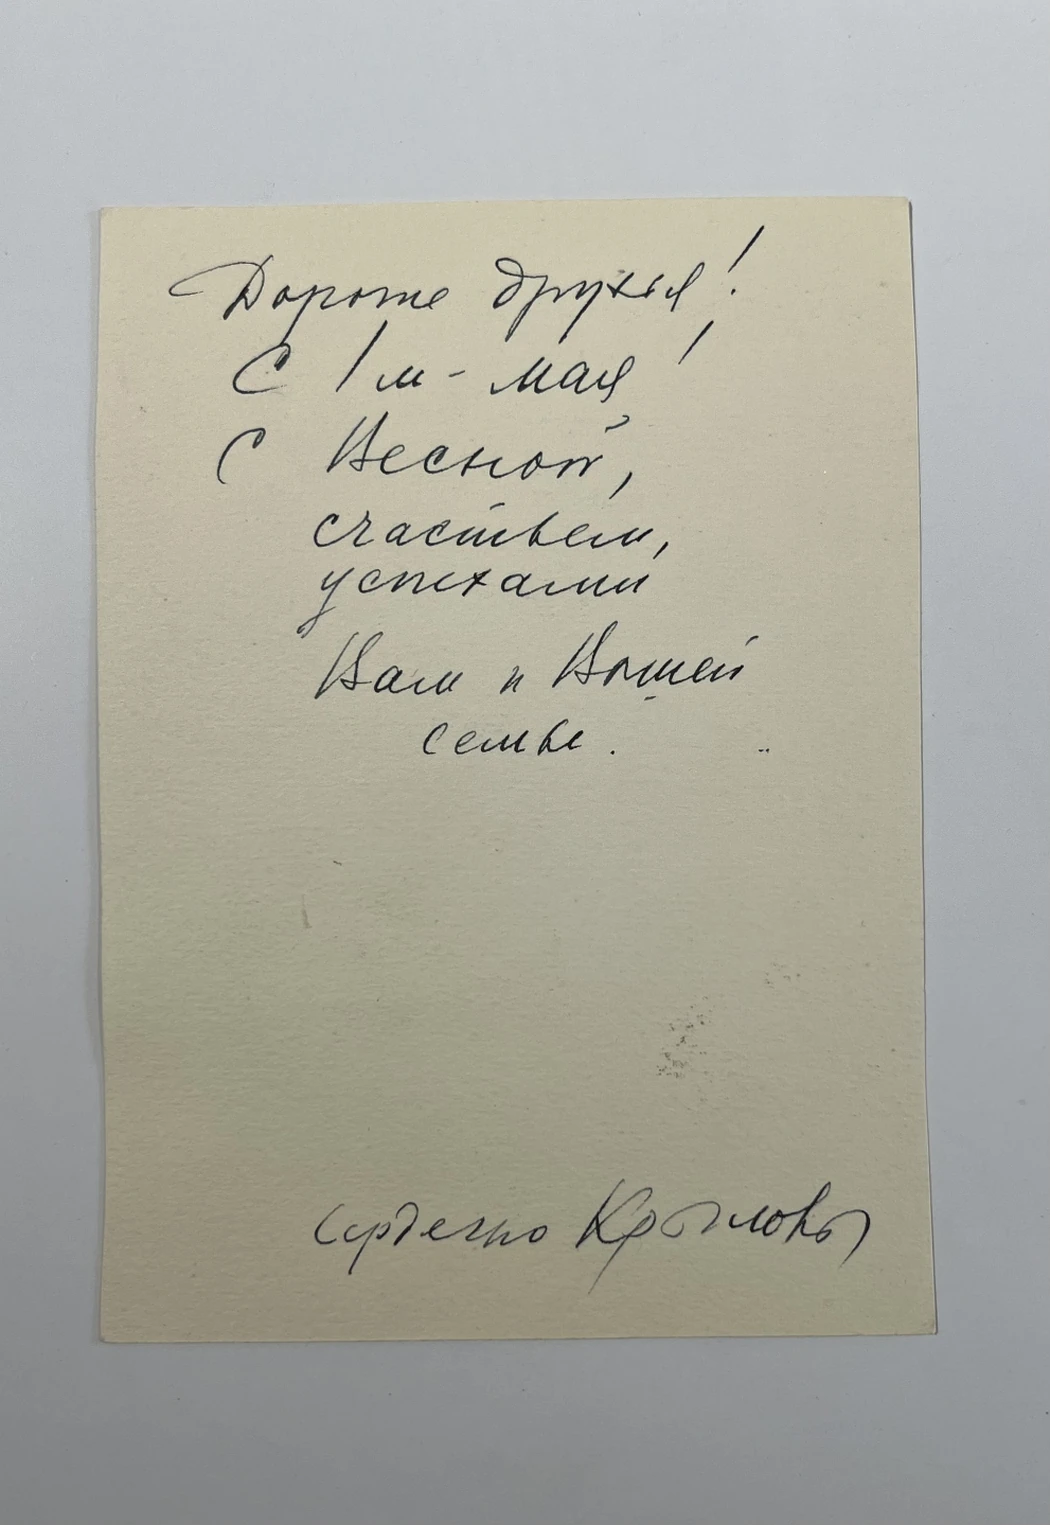 Дорогие друзья!
С 1м - мая!
С Весной,
счастьем,
успехами
Вам и Вашей
семье.
Сердечно Крыловы